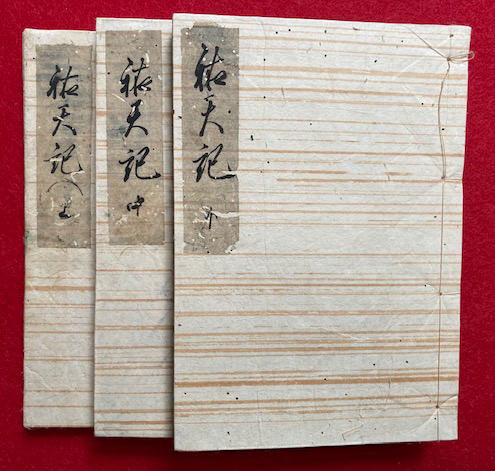 祐天記 上
祐天記 中
祐天記 下